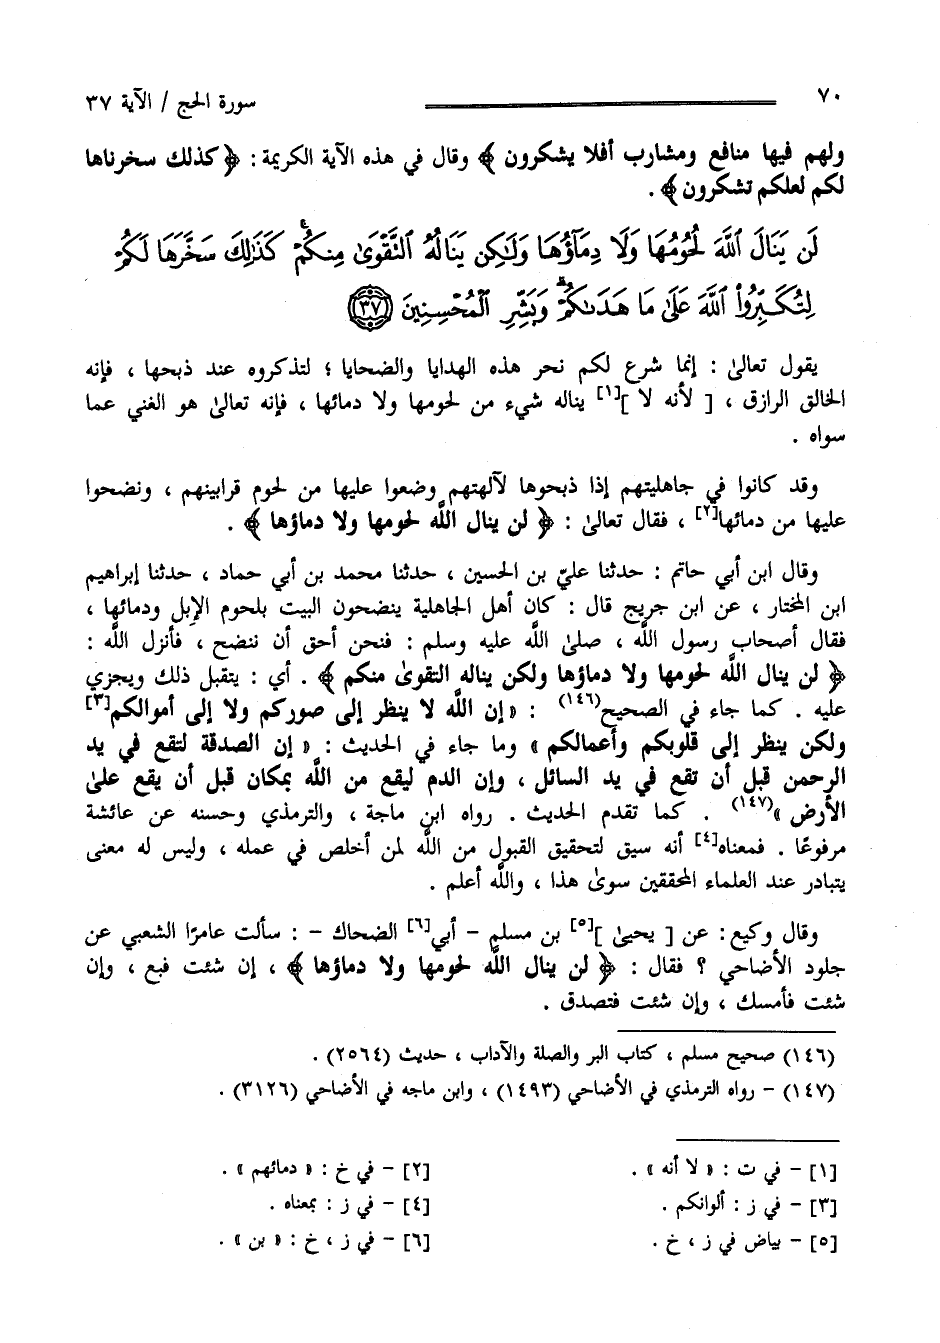 ٧٠
سورة الحج / الآية ٣٧
ولهم فيها منافع ومشارب أفلا يشكرون ﴾ وقال في هذه الآية الكريمة : ﴿ كذلك سخرناها
لكم لعلكم تشكرون ﴾ .
لَن يَنَالَ ٱللَّهَ لُحُومُهَا وَلَا دِمَآؤُهَا وَلَٰكِن يَنَالُهُ ٱلتَّقْوَىٰ مِنكُمْۚ كَذَٰلِكَ سَخَّرَهَا لَكُمْ
لِتُكَبِّرُوا۟ ٱللَّهَ عَلَىٰ مَا هَدَىٰكُمْۗ وَبَشِّرِ ٱلْمُحْسِنِينَ ٣٧
يقول تعالىٰ : إنما شرع لكم نحر هذه الهدايا والضحايا ؛ لتذكروه عند ذبحها ، فإنه
الخالق الرازق ، [ لأنه لا ][١] يناله شيء من لحومها ولا دمائها ، فإنه تعالىٰ هو الغني عما
سواه .
وقد كانوا في جاهليتهم إذا ذبحوها لآلهتهم وضعوا عليها من لحوم قرابينهم ، ونضحوا
عليها من دمائها[٢] ، فقال تعالىٰ : ﴿ لن ينال اللَّه لحومها ولا دماؤها ﴾ .
وقال ابن أبي حاتم : حدثنا عليّ بن الحسين ، حدثنا محمد بن أبي حماد ، حدثنا إبراهيم
ابن المختار ، عن ابن جريج قال : كان أهل الجاهلية ينضحون البيت بلحوم الإبل ودمائها ،
فقال أصحاب رسول اللَّه ، صلىٰ اللَّه عليه وسلم : فنحن أحق أن ننضح ، فأنزل اللَّه :
﴿ لن ينال اللَّه لحومها ولا دماؤها ولكن يناله التقوىٰ منكم ﴾ . أي : يتقبل ذلك ويجزي
عليه . كما جاء في الصحيح(١٤٦) : « إن اللَّه لا ينظر إلى صوركم ولا إلى أموالكم[٣]
ولكن ينظر إلى قلوبكم وأعمالكم » وما جاء في الحديث : « إن الصدقة لتقع في يد
الرحمن قبل أن تقع في يد السائل ، وإن الدم ليقع من اللَّه بمكان قبل أن يقع علىٰ
الأرض »(١٤٧) . كما تقدم الحديث . رواه ابن ماجة ، والترمذي وحسنه عن عائشة
مرفوعًا . فمعناه[٤] أنه سيق لتحقيق القبول من اللَّه لمن أخلص في عمله ، وليس له معنى
يتبادر عند العلماء المحققين سوىٰ هذا ، واللَّه أعلم .
وقال وكيع : عن [ يحيىٰ ][٥] بن مسلم - أبي[٦] الضحاك - : سألت عامرًا الشعبي عن
جلود الأضاحي ؟ فقال : ﴿ لن ينال اللَّه لحومها ولا دماؤها ﴾ ، إن شئت فبع ، وإن
شئت فأمسك ، وإن شئت فتصدق .
(١٤٦) صحيح مسلم ، كتاب البر والصلة والآداب ، حديث (٢٥٦٤) .
(١٤٧) - رواه الترمذي في الأضاحي (١٤٩٣) ، وابن ماجه في الأضاحي (٣١٢٦) .
[١] - في ت : « لا أنه » .
[٢] - في خ : « دمائهم » .
[٣] - في ز : ألوانكم .
[٤] - في ز : بمعناه .
[٥] - بياض في ز ، خ .
[٦] - في ز ، خ : « بن » .